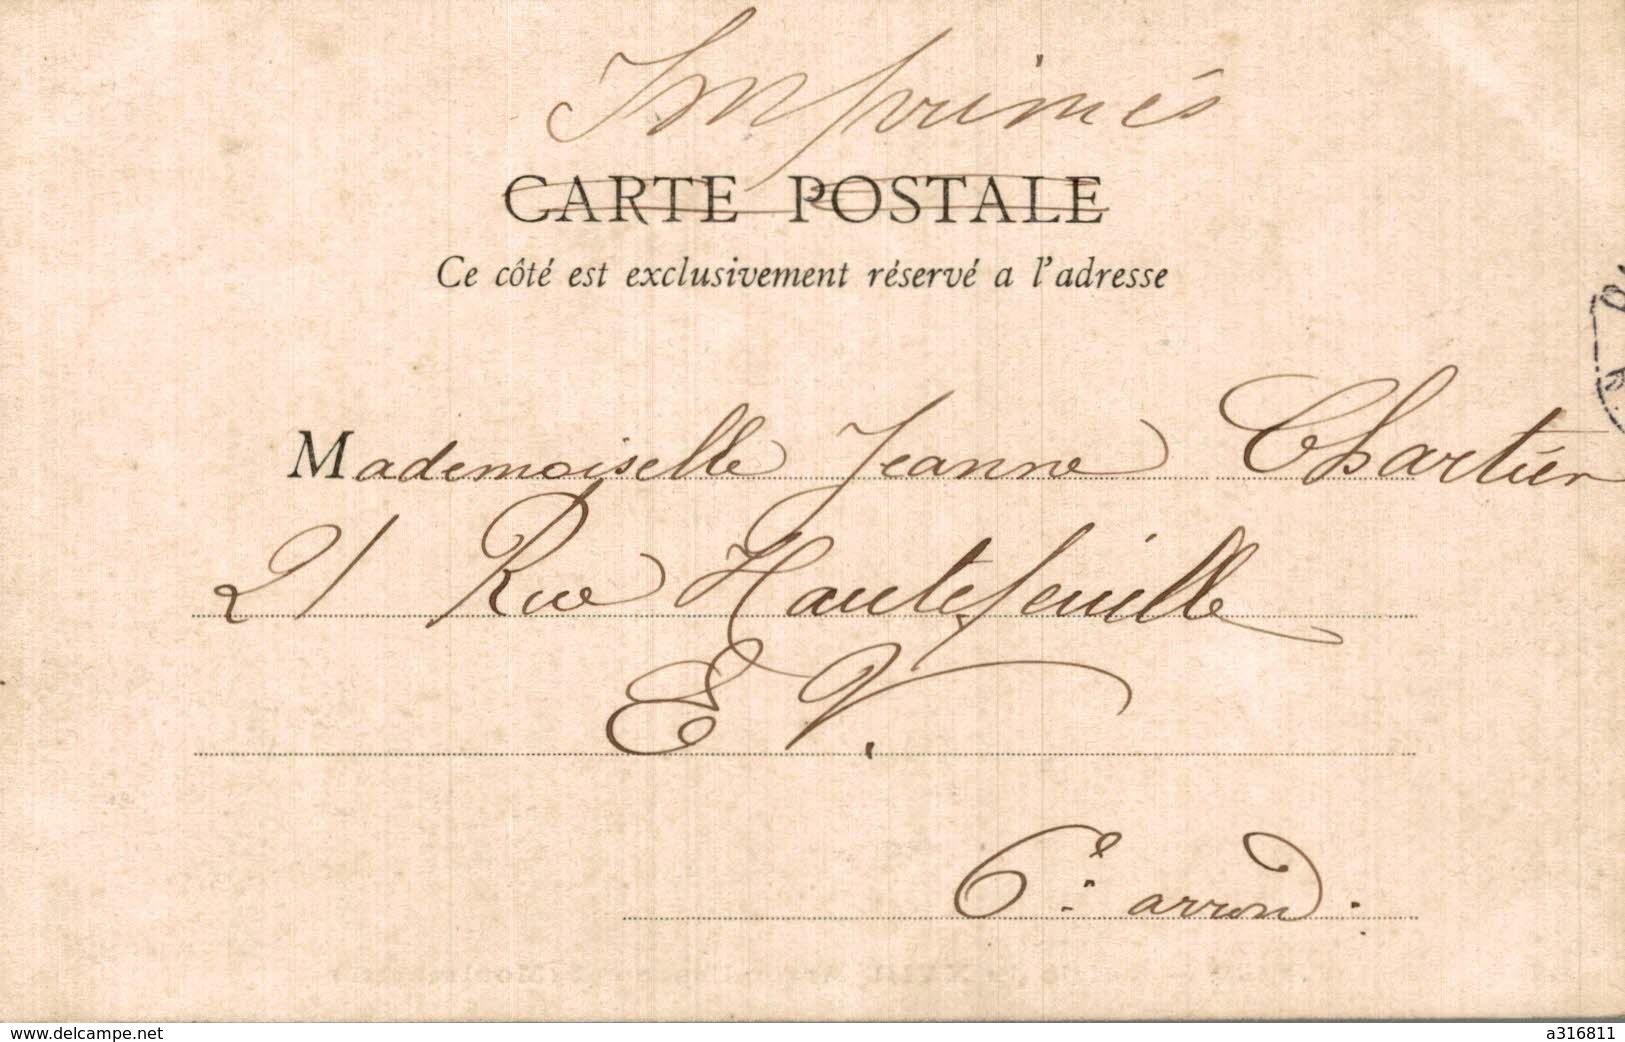 Imprimés
CARTE POSTALE
Ce côté est exclusivement réservé a l'adresse
Mademoiselle Jeanne Chartier
21 Rue Hautefeuille
E V.
6e arrond.
www.delcampe.net
a316811